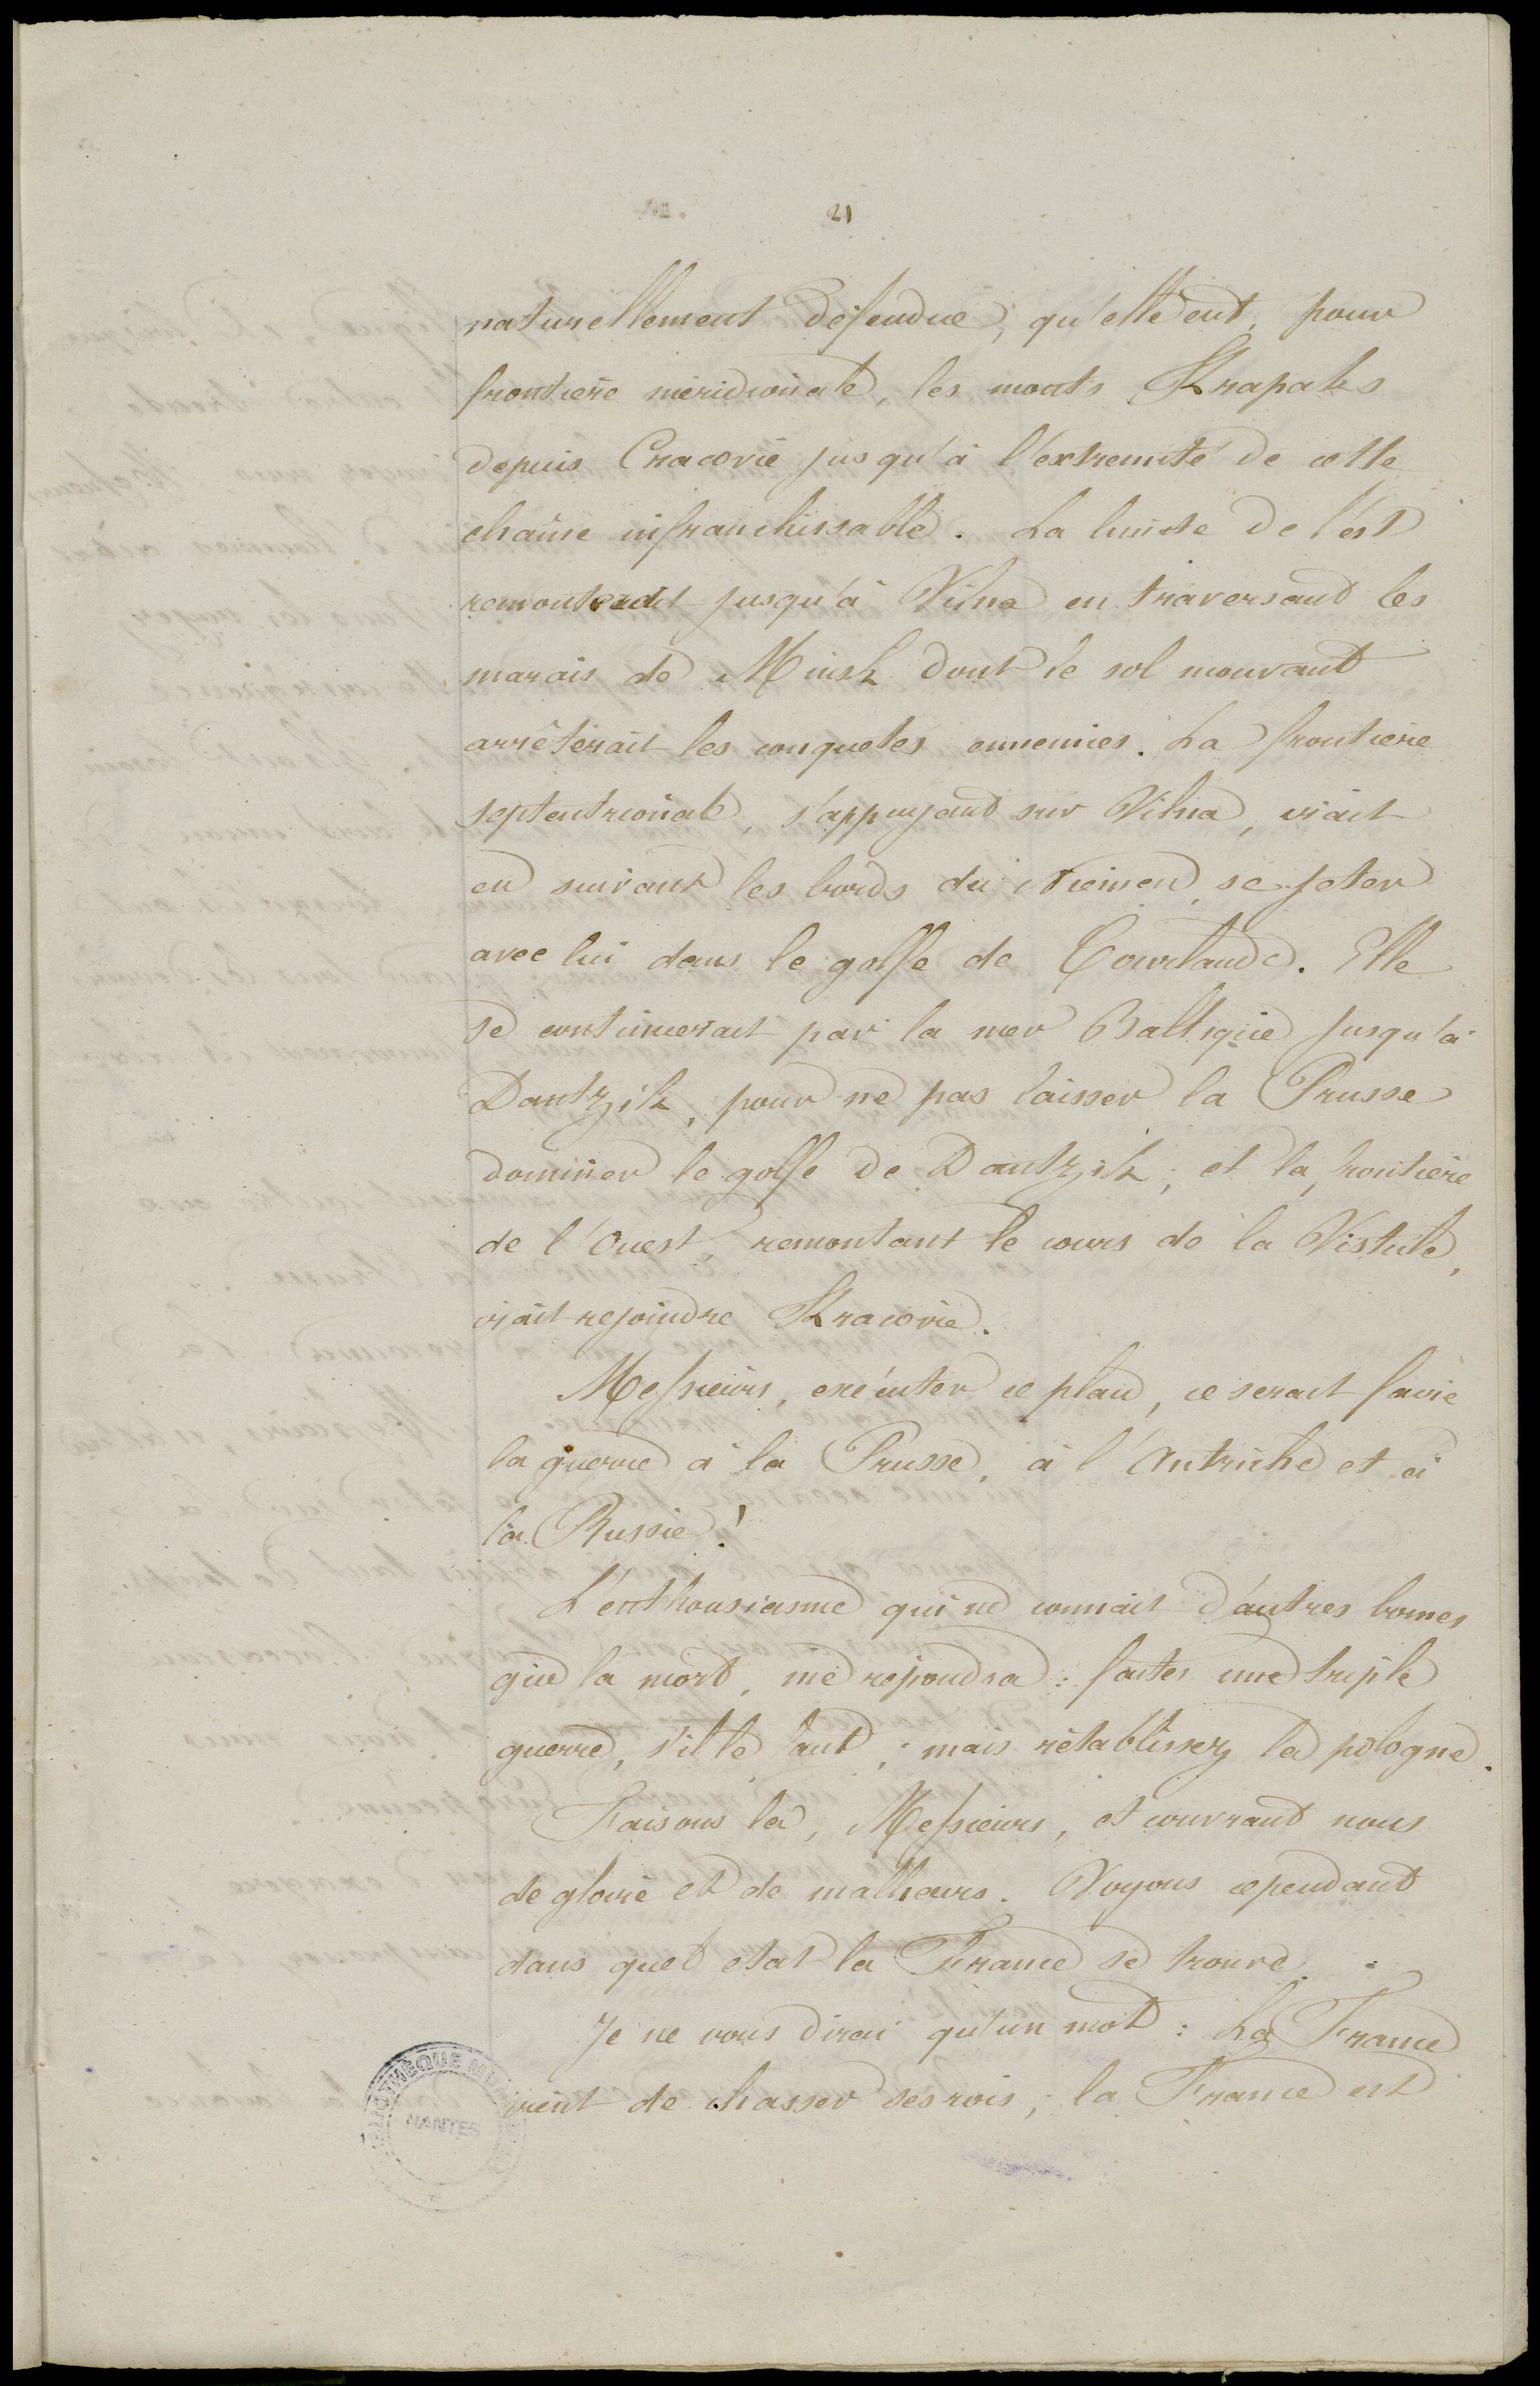 21
naturellement défendue, qu'elle eut, pour
frontière méridionale, les monts Krapaks
depuis Cracovie jusqu'à l'extremité de cette
chaîne infranchissable. La limite de l'est
remonterait jusqu'à Vilna en traversant les
marais de Minsk dont le sol mouvant
arrêterait les conquetes ennemies. La frontière
septentrionale, s'appuyant sur Vilna, irait
en suivant les bords du Niemen, se jeter
avec lui dans le golfe de Courlande. Elle
se continuerait par la mer Baltique jusqu'à
Dantzik, pour ne pas laisser la Prusse
dominer le golfe de Dantzik; et la frontière
de l'Ouest, remontant le cours de la Vistule,
irait rejoindre Kracovie.
Messieurs, exécuter ce plan, ce serait faire
la guerre à la Prusse, à l'Autriche et à
la Russie!
L'enthousiasme qui ne connait d'autres bornes
que la mort, me répondra: faites une triple
guerre, s'il le faut; mais rétablissez la pologne.
Faisons la, Messieurs, et couvrant nous
de gloire et de malheurs. Voyons cependant
dans quel etat la France se trouve.
Je ne vous dirai qu'un mot: La France
vient de chasser ses rois; la France est
BIBLIOTHÈQUE MUNICIPALE
NANTES